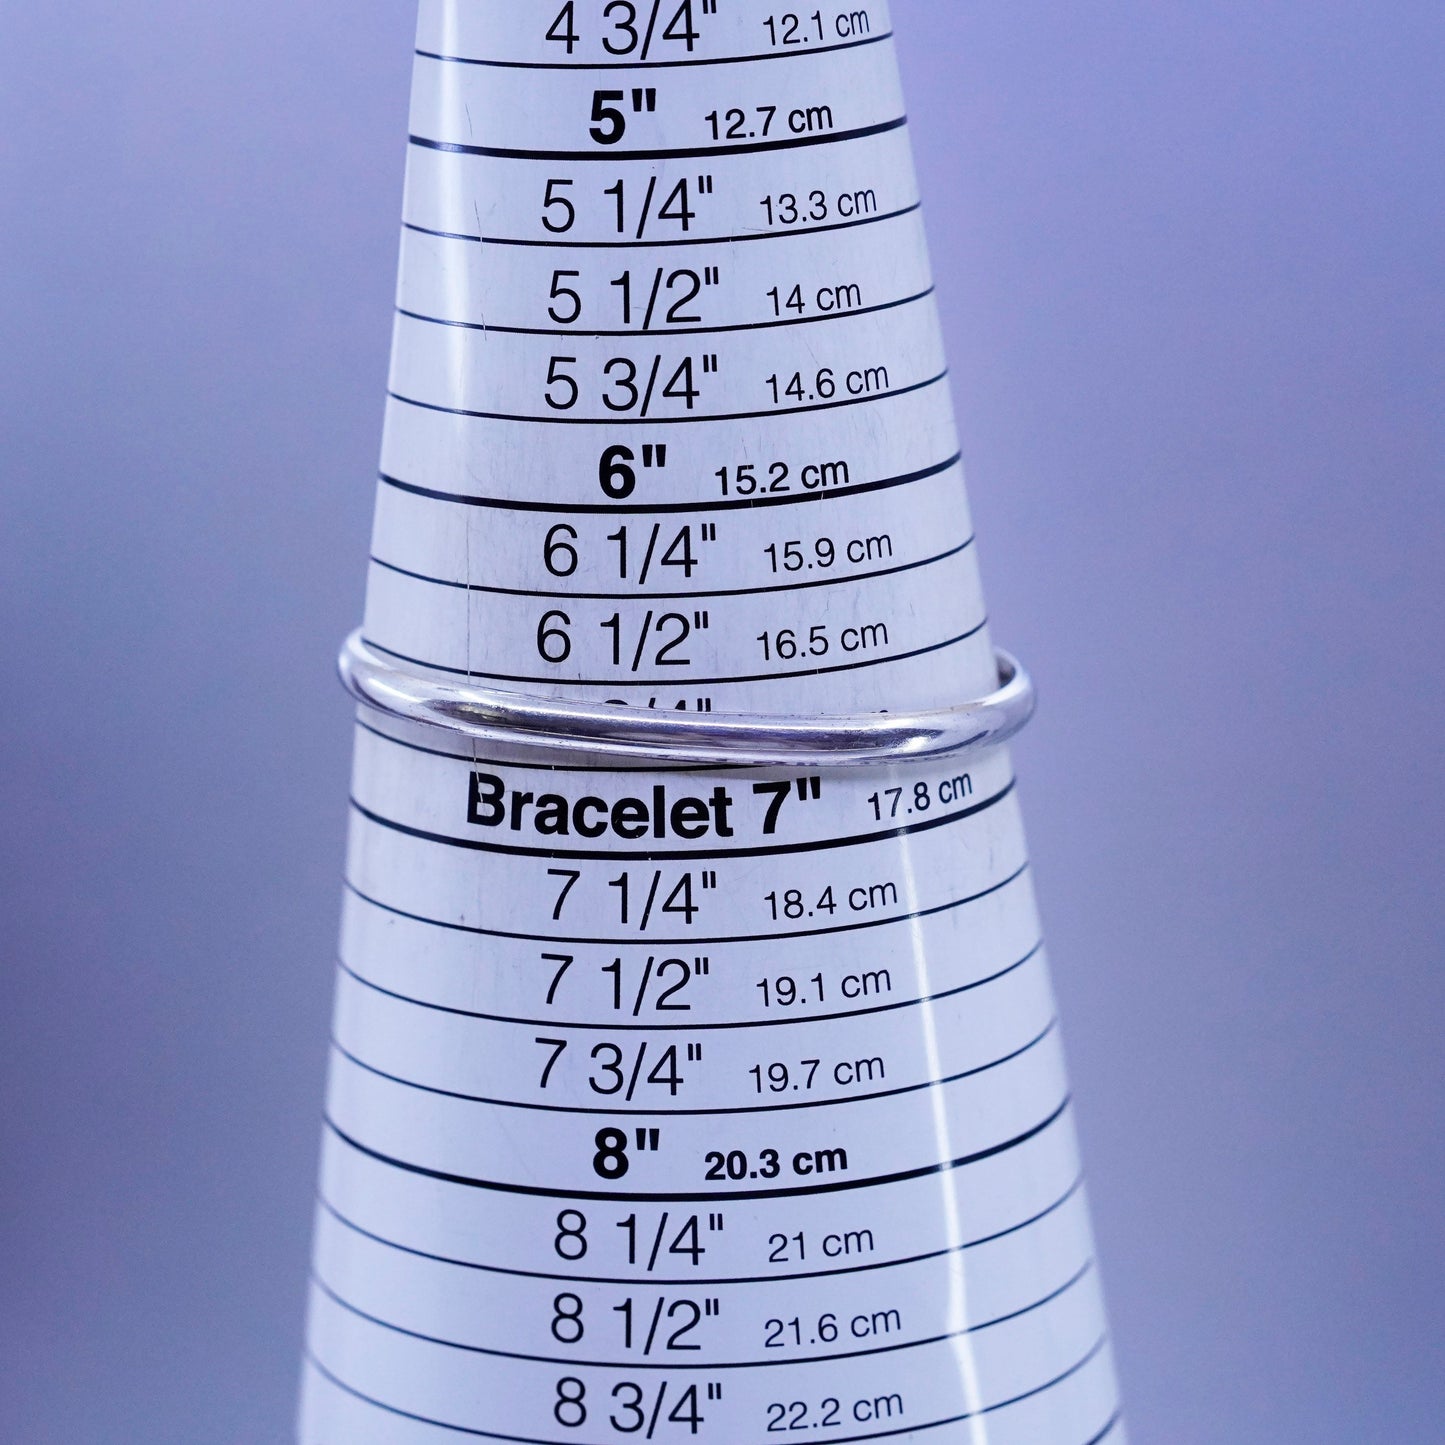 4 3/4" 12.1 cm
5" 12.7 cm
5 1/4" 13.3 cm
5 1/2" 14 cm
5 3/4" 14.6 cm
6" 15.2 cm
6 1/4" 15.9 cm
6 1/2" 16.5 cm
Bracelet 7" 17.8 cm
7 1/4" 18.4 cm
7 1/2" 19.1 cm
7 3/4" 19.7 cm
8" 20.3 cm
8 1/4" 21 cm
8 1/2" 21.6 cm
8 3/4" 22.2 cm